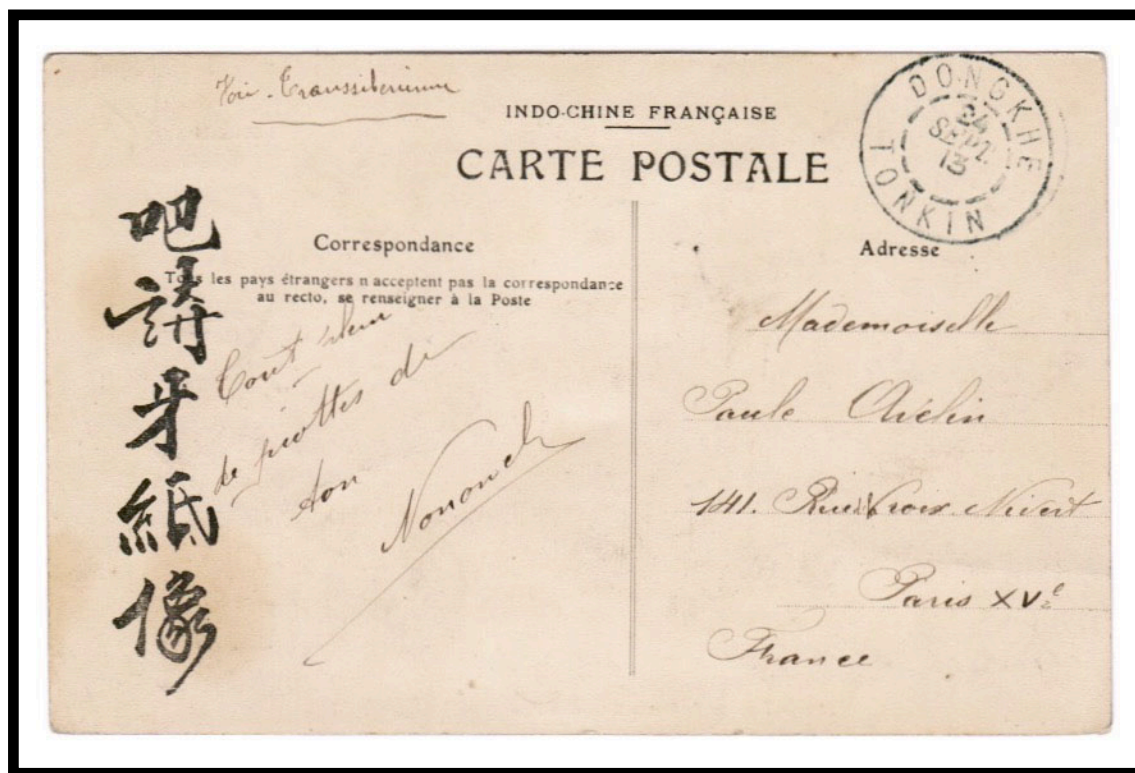 Voie Transsibérienne
INDO-CHINE FRANÇAISE
CARTE POSTALE
DONGKHE
24
SEPT.
13
TONKIN
吧講牙紙像
Correspondance
Tous les pays étrangers n acceptent pas la correspondance
au recto, se renseigner à la Poste
Tout plein
de
de
ton
Adresse
Mademoiselle
Paule
141. Rue Croix Nivert
Paris XVe
France